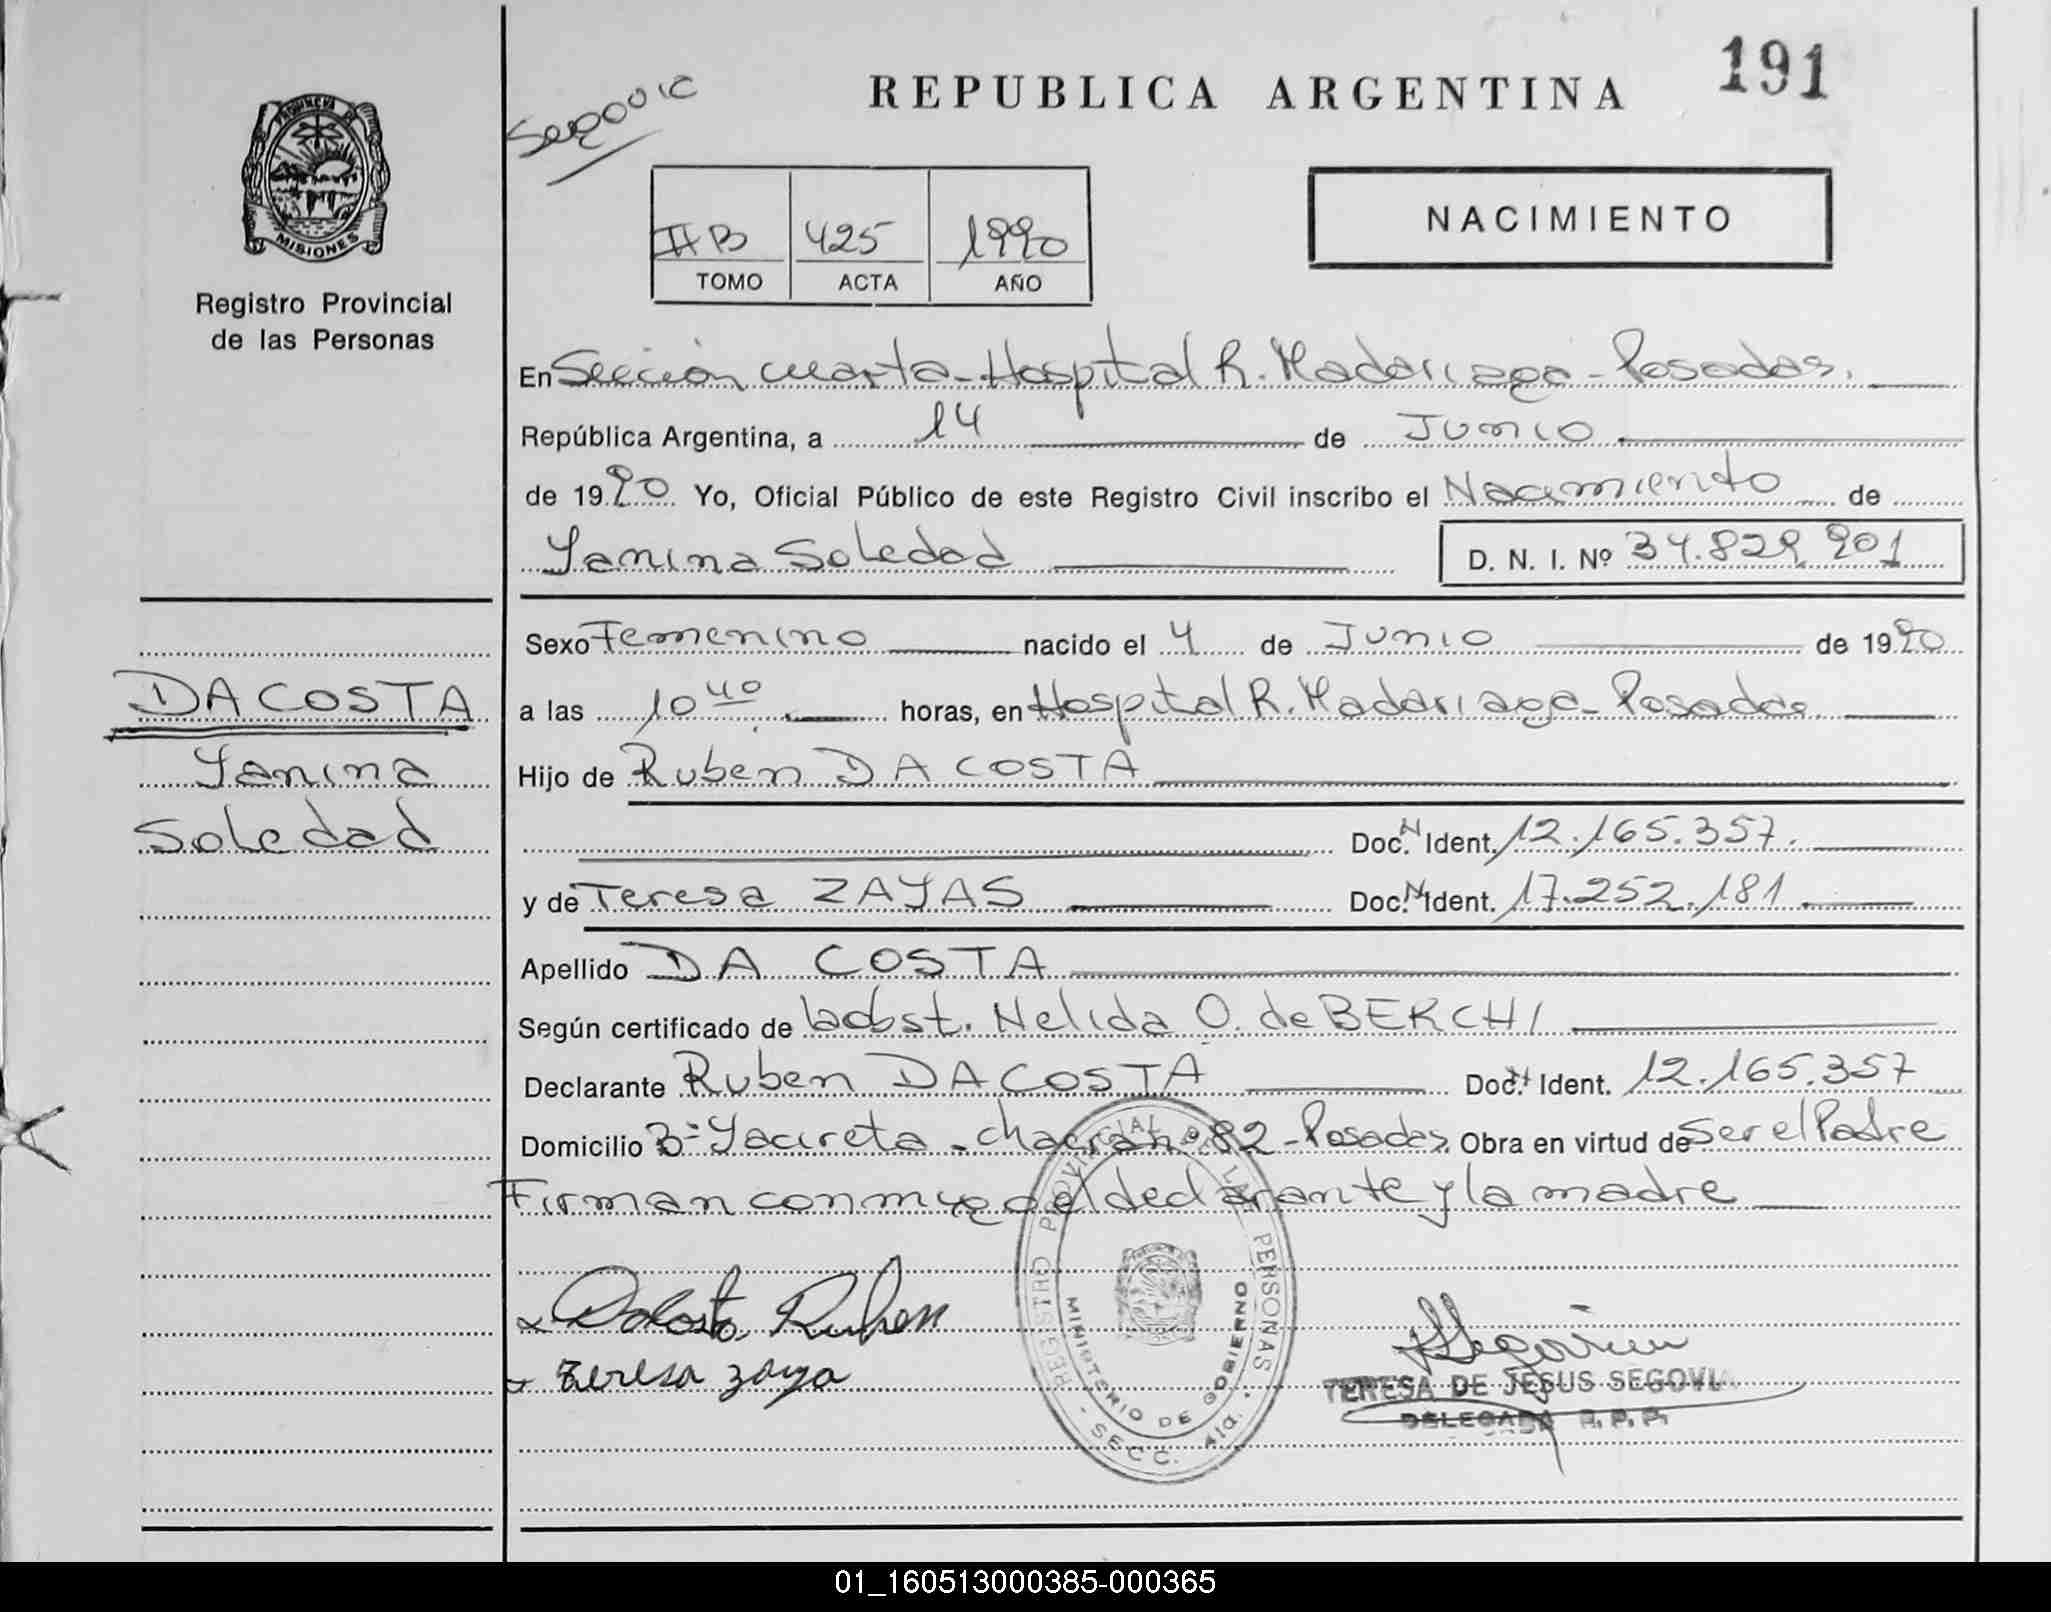 191
REPUBLICA ARGENTINA
Segovia
PROVINCIA DE
MISIONES
Registro Provincial
de las Personas
II B 425 1990
TOMO ACTA AÑO
NACIMIENTO
En Sección cuarta - Hospital R. Madariaga - Posadas.
República Argentina, a 14 de Junio
de 1990 Yo, Oficial Público de este Registro Civil inscribo el Nacimiento de
Yanina Soledad D. N. I. Nº 34.829.901
Sexo Femenino nacido el 4 de Junio de 1990
DA COSTA
Yanina
Soledad
a las 10 40 horas, en Hospital R. Madariaga - Posadas
Hijo de Ruben DA COSTA
Doc. N Ident. 12.165.357.
y de Teresa ZAYAS Doc. N Ident. 17.252.181
Apellido DA COSTA
Según certificado de la obst. Nelida O. de BERCHI
Declarante Ruben DA COSTA Doc. N Ident. 12.165.357
Domicilio Bº Yacireta - chacra nº 82 - Posadas. Obra en virtud de Ser el Padre
Firman conmigo el declarante y la madre
Dacosta Ruben
Teresa zaya
REGISTRO PROVINCIAL DE LAS PERSONAS
MINISTERIO DE GOBIERNO
- SECC. 4ta. -
Segovia
TERESA DE JESUS SEGOVIA
DELEGADA R. P. P.
01_160513000385-000365